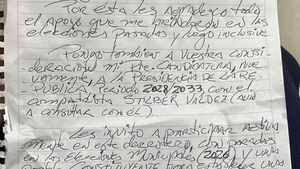 Por ésta les agradezco todo
el apoyo que me brindaron en las
elecciones pasadas y hago inclusive
Pongo también a vuestra consi-
deración mi Pre-CANDIDATURA, NUE
VAMENTE, A LA PRESIDENCIA DE LA RE-
PÚBLICA, período 2028/2033, con el
compatriota STALBER VALDEZ (AUN
A CONSULTAR CON EL)
Les invito a participar activa
mente en este derrotero, con paradas
en las Elecciones Municipales (2026) y una
CONSTITUYENTE para establecer una